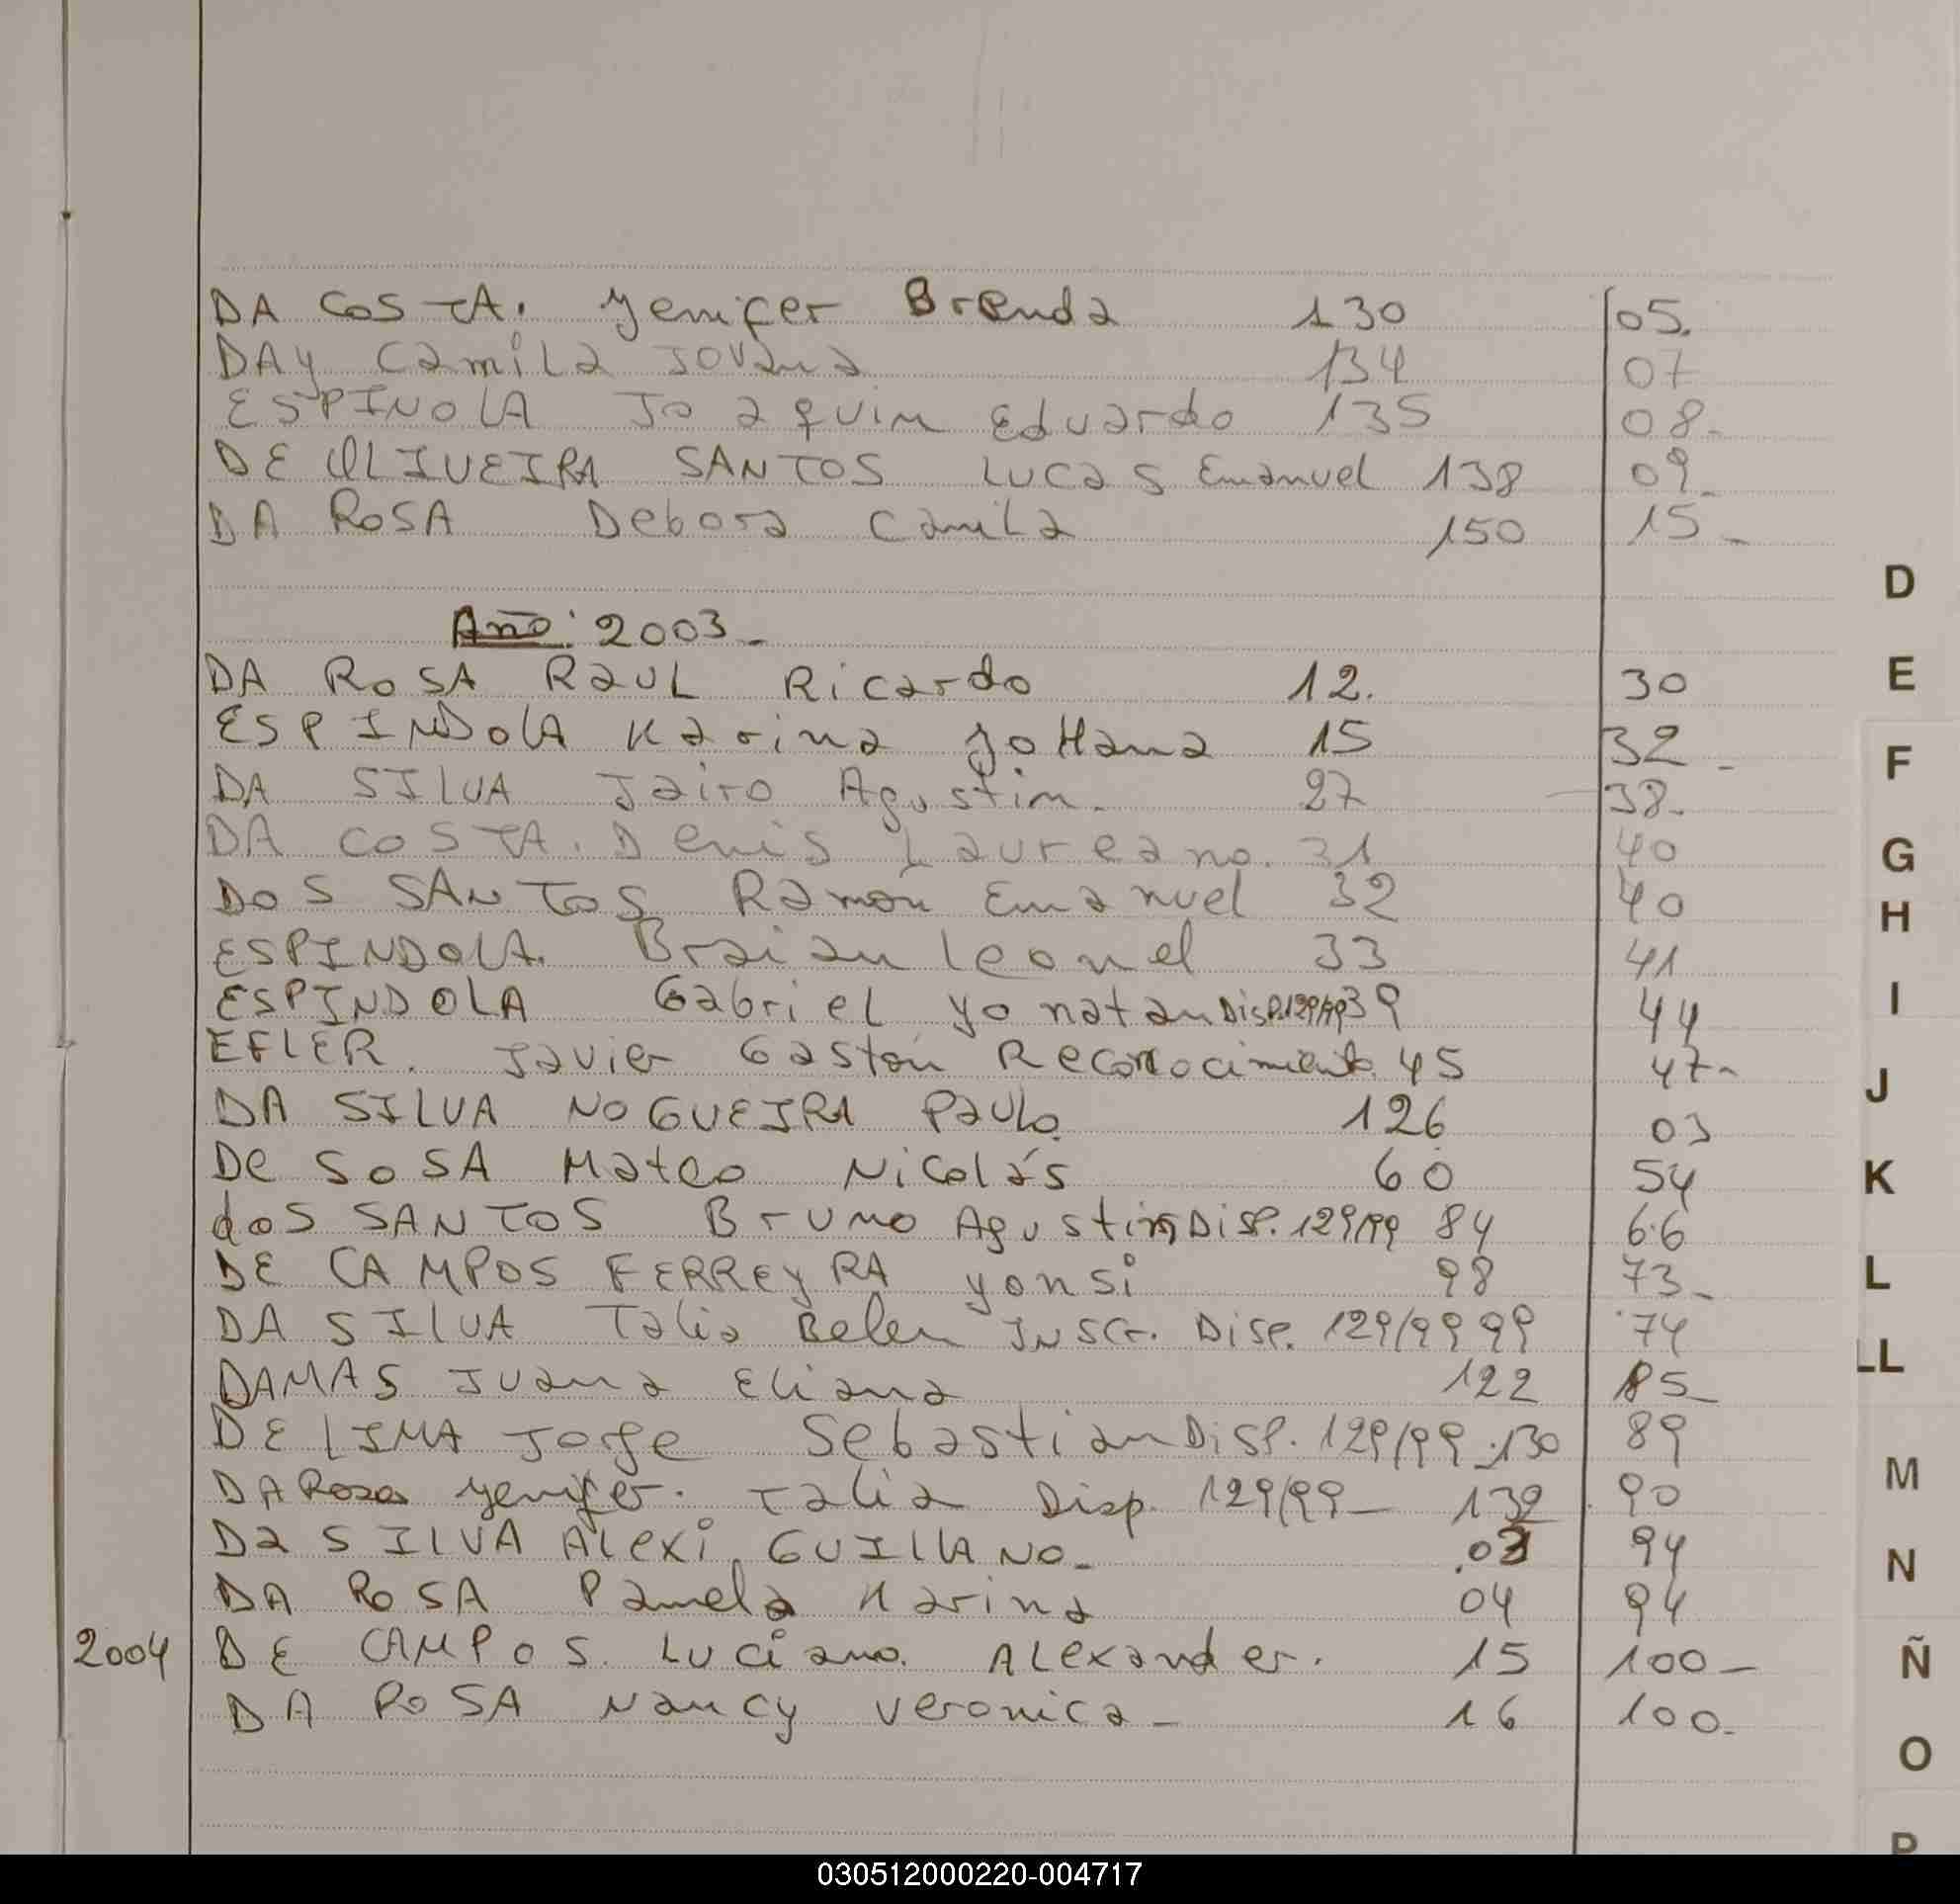 DA COSTA. Yenifer Brenda 130 05.
DAY Camila Jovana 134 07
ESPINOLA Joaquin Eduardo 135 08.
DE OLIVEIRA SANTOS LUCAS Emanuel 138 09.
DA ROSA Debora Camila 150 15-
Año: 2003-
DA ROSA RAUL Ricardo 12. 30
ESPINDOLA Karina YoHana 15 32-
DA SILVA Jairo Agustin. 27 38.
DA COSTA. Denis Laureano. 31 40
DOS SANTOS Ramón Emanuel 32 40
ESPINDOLA. Braian Leonel 33 41
ESPINDOLA Gabriel Yonatan Disp.129/99 39 44
EFLER. Javier Gastón Reconocimiento 45 47-
DA SILVA NOGUEIRA Paulo. 126 03
De SOSA Mateo Nicolás 60 54
dos SANTOS Bruno Agustin Disp. 129/99 84 66
DE CAMPOS FERREYRA Yonsi 98 73-
DA SILVA Talia Belen INSCr. Disp. 129/99 99 74
DAMAS Juana Eliana 122 85-
DE LIMA Jorge Sebastian Disp. 129/99 130 89
DA Rosa Yenifer. Talia Disp. 129/99- 132 90
Da SILVA Alexi GUILLANO- 03 94
DA ROSA Pamela Karina 04 94
2004 DE CAMPOS. Luciano. Alexander. 15 100-
DA ROSA Nancy Veronica- 16 100-
D
E
F
G
H
I
J
K
L
LL
M
N
Ñ
O
P
030512000220-004717